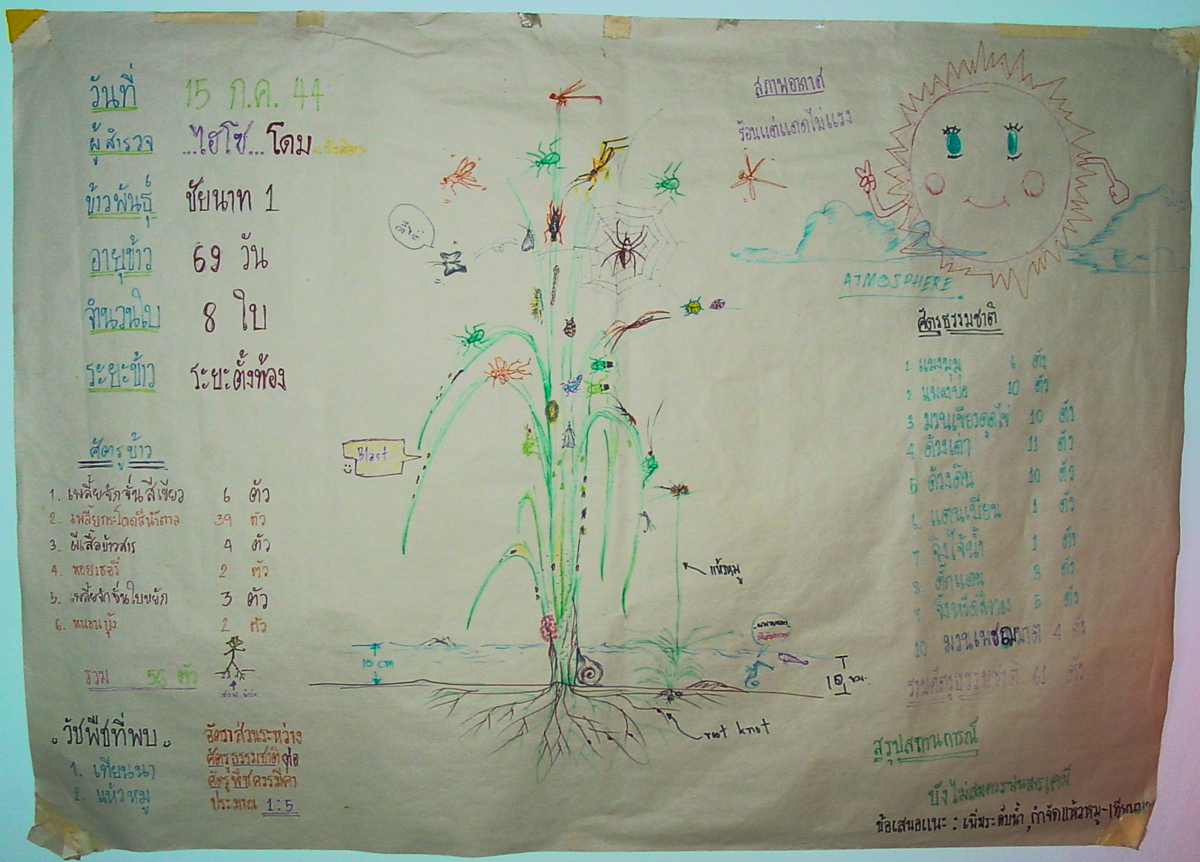 วันที่ 15 ก.ค. 44
ผู้สำรวจ ...ไฮโซ...โดม
ข้าวพันธุ์ ชัยนาท 1
อายุข้าว 69 วัน
จำนวนใบ 8 ใบ
ระยะข้าว ระยะตั้งท้อง
ศัตรูข้าว
1. เพลี้ยจักจั่นสีเขียว 6 ตัว
2. เพลี้ยกระโดดสีน้ำตาล 39 ตัว
3. ผีเสื้อข้าวสาร 4 ตัว
4. หอยเชอรี่ 2 ตัว
5. เพลี้ยจักจั่นใบหยัก 3 ตัว
6. หนอนบุ้ง 2 ตัว
รวม 56 ตัว
วัชพืชที่พบ
1. เทียนนา
2. แห้วหมู
อัตราส่วนระหว่าง
ศัตรูธรรมชาติต่อ
ศัตรูพืชควรมีค่า
ประมาณ 1:5
Blast
10 cm
แห้วหมู
root knot
10 ซม.
สภาพอากาศ
ร้อนแต่แดดไม่แรง
ATMOSPHERE
ศัตรูธรรมชาติ
1. แมงมุม 6 ตัว
2. แมลงปอ 10 ตัว
3 มวนเขียวดูดไข่ 10 ตัว
4 ด้วงเต่า 11 ตัว
5 ด้วงดิน 10 ตัว
6. แตนเบียน 1 ตัว
7. จิงโจ้น้ำ 1 ตัว
8. ตั๊กแตน 3 ตัว
9. จิ้งหรีดหางดาบ 5 ตัว
10 มวนเพชฌฆาต 4 ตัว
รวมศัตรูธรรมชาติ 61 ตัว
สรุปสถานการณ์
ยังไม่สมควรพ่นสารเคมี
ข้อเสนอแนะ : เพิ่มระดับน้ำ, กำจัดแห้วหมู-เทียนนา